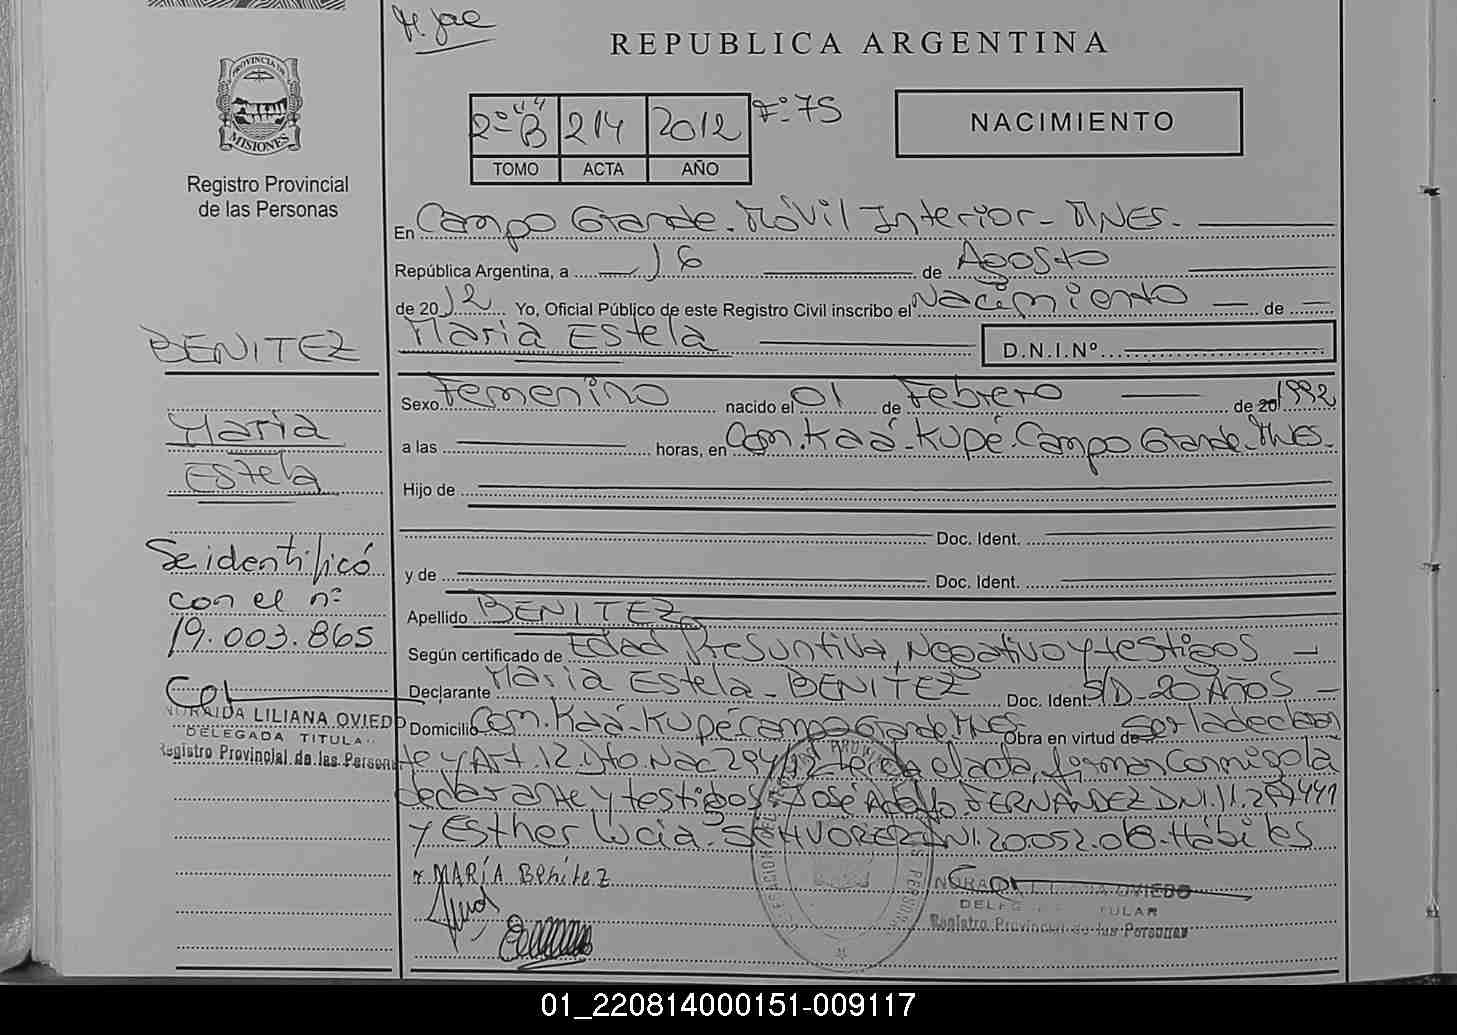 REPUBLICA ARGENTINA
PROVINCIA DE
MISIONES
Registro Provincial
de las Personas
2º "B" 214 2012 Fº 75
TOMO ACTA AÑO
NACIMIENTO
En Campo Grande. Móvil Interior - MNES.
República Argentina, a 16 de Agosto
de 2012 Yo, Oficial Público de este Registro Civil inscribo el Nacimiento de
María Estela D.N.I.Nº
BENITEZ
María
Estela
Sexo Femenino nacido el 01 de Febrero de 20 1992
a las horas, en Com. Kaá-Kupé. Campo Grande. MNES.
Hijo de
Doc. Ident.
y de Doc. Ident.
Apellido BENITEZ
Según certificado de Edad Presuntiva, Negativo y testigos
Declarante María Estela - BENITEZ Doc. Ident. S/D - 20 Años
Domicilio Com. Kaá-Kupé Campo Grande MNES Obra en virtud de Ser la declaran
te y Art. 12 Dto. Nac 294/12 leída el acta, firman Conmigo la
declarante y testigos José Adolfo. FERNANDEZ DNI. 11.
y Esther Lucia. DNI 20.052. Hábiles
MARÍA BENíteZ
NORAIDA LILIANA OVIEDO
DELEGADA TITULAR
Registro Provincial de las Personas
Se identificó
con el nº
19.003.865
NORAIDA LILIANA OVIEDO
DELEGADA TITULAR
Registro Provincial de las Personas
01_220814000151-009117